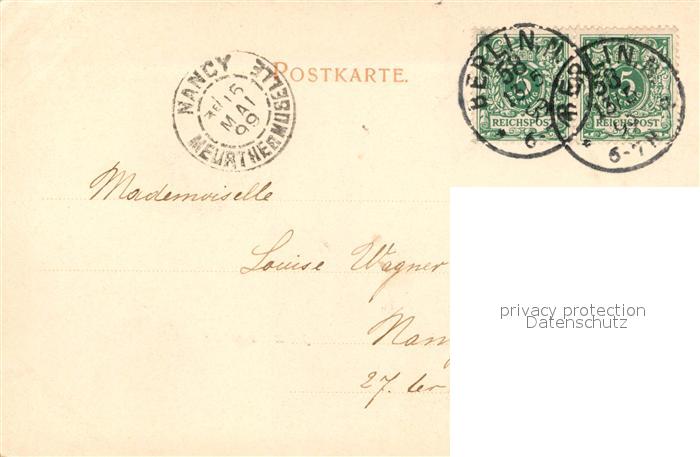 POSTKARTE.
NANCY
15
MAI
99
MEURTHE MOSELLE
BERLIN.N.
58
5
REICHSPOST
BERLIN.N.
58
5
REICHSPOST
6-7N
Mademoiselle
Louise Wagner
Nan
27. ter
privacy protection
Datenschutz